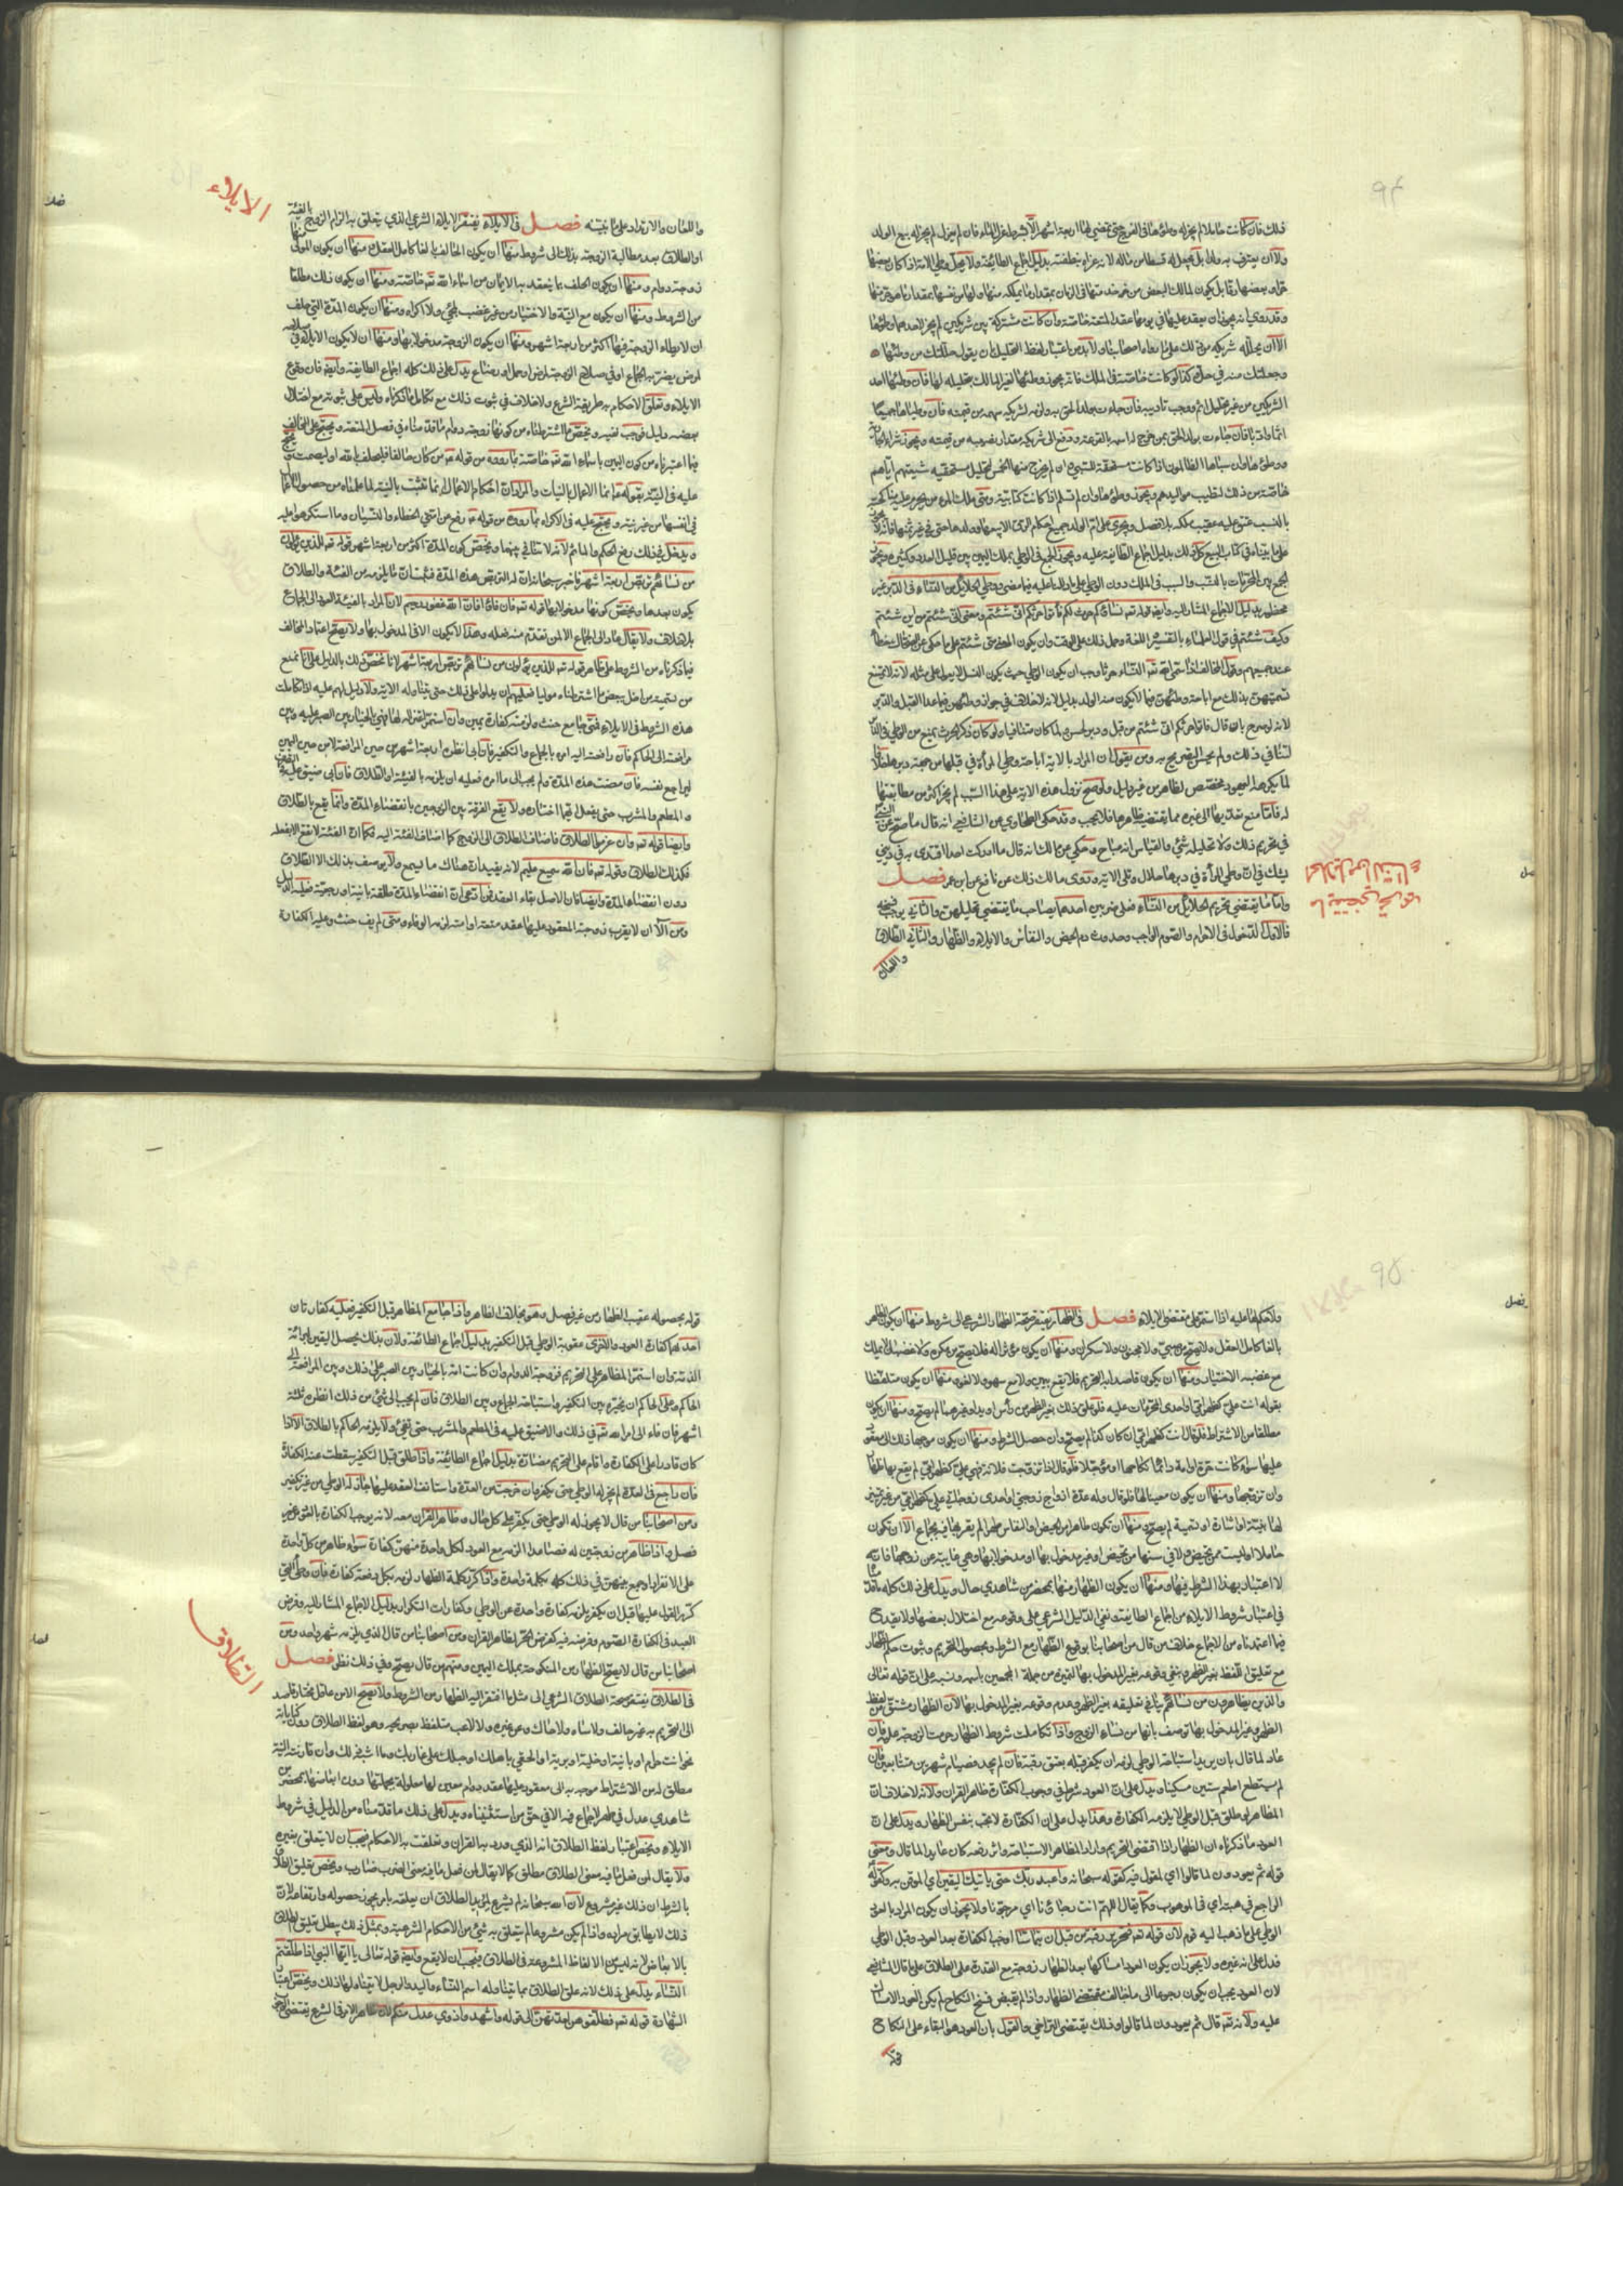 ٩٤
ذلك فان كانت حاملا لم يجز له وطؤها في الفرج حتى تمضي لها اربعة اشهر الا بشرط عزل الماء فان لم يعزل لم يجز له بيع الولد
ولا ان يعترف به ولدا بل يجعل له قسطا من ماله لانه غذاه بنطفته بدليل اجماع الطائفة ولا يحل وطي الامة اذا كان بعضها
حرا وبعضها رقا بل يكون لمالك البعض من خدمتها في الزمان بمقدار ما يملكه منها ولها من نفسها بمقدار ما تحرر منها
وقد روي انه يجوز ان يعقد عليها في يومها عقد المتعة خاصة وان كانت مشتركة بين شريكين لم يجز لاحدهما وطؤها
الا ان يحلله شريكه من ذلك على ما رواه اصحابنا ولا بد من اعتبار لفظ التحليل بان يقول حللتك من وطئها
وجعلتك منه في حل وكذا لو كانت خاصة في الملك فانه يجوز وطئها لغير المالك بتحليله لها فان وطئها احد
الشريكين من غير تحليل اثم ووجب تاديبه فان جاءت بولد الحق به ولزمه لشريكه سهمه من قيمته فان وطياها جميعا
اثما وادبا فان جاءت بولد الحق بمن خرج له اسمه بالقرعة ودفع الى شريكه مقدار نصيبه من قيمته ويجوز شراء الجارية
ووطؤها وان سباها الظالمون اذا كانت مستحقة للسبي وان لم يخرج منها الخمس لتحليل مستحقيه شيعتهم اياهم
خاصة من ذلك لتطيب مواليدهم ويجوز وطؤها وان لم تسلم اذا كانت كتابية ومتى ملك المرء من يحرم عليه مناكحته
بالنسب عتق عليه عقيب ملكه بلا فصل ويجري على ام الولد جميع احكام الرق الا بيعها وولدها حي في غير ثمنها فانه لا يجوز
على ما بيناه في كتاب البيع كل ذلك بدليل اجماع الطائفة عليه ويجوز الجمع في الوطي بملك اليمين بين قليل العدد وكثيره ويجوز
الجمع بين المحرمات بالنسب والسبب في الملك دون الوطي على ما دللنا عليه فيما مضى ووطي الحلايل من النساء في الدبر غير
محظور بدليل الاجماع المشار اليه وايضا قوله تعه نساؤكم حرث لكم فاتوا حرثكم انى شئتم ومعنى انى شئتم من اين شئتم
وكيف شئتم في قول العلماء بالتفسير واللغة وحمل ذلك على الوقت وان يكون المعنى متى شئتم على ما حكي عن الضحاك خطأ
عند جميعهم وقول المخالف اذا سمى الله تعه النساء حرثا وجب ان يكون الوطي حيث يكون النسل لا يعول على مثله لانه لا يمتنع
تسميتهن بذلك مع اباحة وطئهن فيما لا يكون منه الولد بدليل انه لا خلاف في جواز وطئهن فيما عدا القبل والدبر
لانه لو صرح بان قال فاتوا حرثكم انى شئتم من قبل ودبر لحسن ولما كان متنافيا ولو كان ذكر الحرث يمنع من الوطي في الدبر
لتنافي ذلك ولم يحسن التصريح به ومن يقول ان المراد بالاية اباحة وطي المرأة في قبلها من جهة دبرها خلافا
لما يكرهه اليهود مخصص لظاهر من غير دليل ولو صح نزول هذه الاية على هذا السبب لم يجز اكثر من مطابقتها
له فاما منع تعديها الى غيره مما يقتضيه ظاهرها فلا يجب وقد حكى الطحاوي عن الشافعي انه قال ما صح عن النبي
في تحريم ذلك ولا تحليله شئ والقياس انه مباح وحكي عن مالك انه قال ما ادركت احدا اقتدي به في ديني
يشك في ان وطي المرأة في دبرها حلال وتلى الاية وروى مالك ذلك عن نافع عن ابن عمر فصل
واما ما يقتضي تحريم الحلايل من النساء فعلى ضربين احدهما يصاحب ما يقتضي تحليلهن والثاني يوجب فسخه
فالاول الدخول في الاحرام والصوم الواجب وحدوث دم الحيض والنفاس والايلاء والظهار والثاني الطلاق
واللعان
ما يقتضي تحريم
الحلايل من النساء
واللعان والارتداد على ما نبينه فصل في الايلاء يفتقر الايلاء الشرعي الذي يتعلق به الزام الزوج بالفيئة
او الطلاق بعد مطالبة الزوجة بذلك الى شروط منها ان يكون الحالف بالغا كامل العقل ومنها ان يكون المولى منها
زوجة دوام ومنها ان يكون الحلف بما ينعقد به الايمان من اسماء الله تعه خاصة ومنها ان يكون ذلك مطلقا
من الشروط ومنها ان يكون مع النية والاختيار من غير غضب ملجئ ولا اكراه ومنها ان يكون المدة التي حلف
ان لا يطاء الزوجة فيها اكثر من اربعة اشهر ومنها ان يكون الزوجة مدخولا بها ومنها ان لا يكون الايلاء في صلاحه
لمرض يضر به الجماع او في صلاح الزوجة لمرض او حمل او رضاع يدل على ذلك كله اجماع الطايفة وايضا فان وقوع
الايلاء وتعلق الاحكام به طريقه الشرع ولا خلاف في ثبوت ذلك مع تكامل ما ذكرناه وليس على ثبوته مع اختلال
بعضه دليل فوجب نفيه ويخص ما اشترطناه من كونها زوجة دوام ما قدمناه في فصل المتعة ويحتج على المخالف
فيما اعتبرناه من كون اليمين باسماء الله تعه خاصة بما رووه من قوله ع من كان حالفا فليحلف بالله او ليصمت ويحتج
عليه في النية بقوله ع انما الاعمال بالنيات والمراد ان احكام الاعمال انما تثبت بالنية لما علمناه من حصول الاعمال
في انفسها من غير نية ويحتج عليه في الاكراه بما رووه من قوله ع رفع عن امتي الخطاء والنسيان وما استكرهوا عليه
ويدخل في ذلك رفع الحكم والماثم لانه لا تنافي بينهما ويخص كون المدة اكثر من اربعة اشهر قوله تعه للذين يؤلون
من نسائهم تربص اربعة اشهر فاخبر سبحانه ان له التربص هذه المدة فثبت ان ما يلزمه من الفئة والطلاق
يكون بعدها ويخص كونها مدخولا بها قوله تعه فان فاؤا فان الله غفور رحيم لان المراد بالفيئة العود الى الجماع
بلا خلاف ولا يقال عاد الى الجماع الا لمن تقدم منه فعله وهذا لا يكون الا في المدخول بها ولا يصح اعتماد المخالف
فيما ذكرناه من الشروط على ظاهر قوله تعه للذين يؤلون من نسائهم تربص اربعة اشهر لانا نخص ذلك بالدليل على انا نمنع
من تسمية من اخل ببعض ما اشترطناه موليا فعليهم ان يدلوا على ذلك حتى يتناوله الاية ولا دليل لهم عليه اذا تكاملت
هذه الشروط في الايلاء فمتى جامع حنث ولزمته كفارة يمين وان استمر اعتزاله لها فهي بالخيار بين الصبر عليه وبين
مرافعته الى الحاكم فان رافعته اليه امره بالجماع والتكفير فان ابى انظره اربعة اشهر من حين المرافعة لا من حين اليمين
ليراجع نفسه فان مضت هذه المدة ولم يجب الى ما امره فعليه ان يلزمه بالفيئة او الطلاق فان ابى ضيق عليه في التصرف
والمطعم والمشرب حتى يفعل ايهما اختاره ولا يقع الفرقة بين الزوجين بانقضاء المدة وانما يقع بالطلاق
وايضا قوله تعه وان عزموا الطلاق فاضاف الطلاق الى الزوج كما اضاف الفئة اليه فكما ان الفئة لا تقع الا بفعله
فكذلك الطلاق وقوله تعه فان الله سميع عليم لانه يفيد ان هناك ما يسمع ولا يوصف بذلك الا الطلاق
دون انقضاء المدة وايضا فان الاصل بقاء العقد فمن ادعى ان انقضاء المدة طلقة باينة او رجعية فعليه الدليل
ومن آلى ان لا يقرب زوجته المعقود عليها عقد متعة او امته لزمه الوفاء ومتى لم يف حنث وعليه الكفارة
الايلاء
٩٥
ولا حكم لها عليه اذا استمر على مقتضى الايلاء فصل في الظهار يفتقر صحة الظهار الشرعي الى شروط منها ان يكون المظاهر
بالغا كامل العقل ولا يصح من صبي ولا مجنون ولا سكران ومنها ان يكون مؤثرا له فلا يصح من مكره ولا غضبان لا يملك
مع غضبه الاختيار ومنها ان يكون قاصدا به التحريم فلا يقع بيمين ولا مع سهو ولا لغو ومنها ان يكون متلفظا
بقوله انت علي كظهر امي او احدى المحرمات عليه فلو علق ذلك بغير الظهر من رأس او يد او غيرهما لم يصح ومنها ان يكون
مطلقا من الاشتراط فلو قال انت كظهر امي ان كان كذا لم يصح وان حصل الشرط ومنها ان يكون موجها ذلك الى معقود
عليها سواء كانت حرة او امة دائما نكاحها او مؤجلا فلو قال اذا تزوجت فلانة فهي علي كظهر امي لم يقع بها ظهار
وان تزوجها ومنها ان يكون معينا لها فلو قال وله عدة ازواج زوجتي او احدى زوجاتي علي كظهر امي من غير تمييز
لها بنية او اشارة او تسمية لم يصح ومنها ان تكون طاهرا من الحيض او النفاس طهرا لم يقربها فيه بجماع الا ان تكون
حاملا او ليست ممن تحيض ولا في سنها من تحيض او غير مدخول بها او مدخولا بها وهي غايبة عن زوجها فانه
لا اعتبار بهذا الشرط فيها ومنها ان يكون الظهار منها بمحضر من شاهدي عدل ويدل على ذلك كله ما قدمناه
في اعتبار شروط الايلاء من اجماع الطايفة ونفي الدليل الشرعي على وقوعه مع اختلال بعضها ولا يقدح
فيما اعتمدناه من الاجماع خلاف من قال من اصحابنا بوقوع الظهار مع الشرط وبحصول التحريم وثبوت حكم الظهار
مع تعليق اللفظ بغير الظهر وبنفي وقوعه بغير المدخول بها لتميزه من جملة المجمعين باسمه ونسبه على ان قوله تعالى
والذين يظاهرون من نسائهم ينافي تعليقه بغير الظهر وعدم وقوعه بغير المدخول بها لان الظهار مشتق من لفظ
الظهر وغير المدخول بها توصف بانها من نساء الزوج واذا تكاملت شروط الظهار حرمت الزوجة عليه فان
عاد لما قال بان يريد استباحة الوطي لزمه ان يكفر قبله بعتق رقبة فان لم يجد فصيام شهرين متتابعين فان
لم يستطع اطعم ستين مسكينا ويدل على ان العود شرط في وجوب الكفارة ظاهر القرآن ولانه لا خلاف ان
المظاهر لو طلق قبل الوطي لا يلزمه الكفارة وهذا يدل على ان الكفارة لا تجب بنفس الظهار ويدل على ان
العود ما ذكرناه ان الظهار اذا اقتضى التحريم واراد المظاهر الاستباحة واثر رفعه كان عايدا لما قال ومعنى
قوله ثم يعودون لما قالوا اي لمقول فيه كقوله سبحانه واعبد ربك حتى ياتيك اليقين اي الموقن به وكقوله
الراجع في هبته اي في الموهوب وكما يقال اللهم انت رجائنا اي مرجونا ولا يجوز ان يكون المراد بالعود
الوطي على ما ذهب اليه قوم لان قوله تعه فتحرير رقبة من قبل ان يتماسا اوجب الكفارة بعد العود وقبل الوطي
فدل على انه غيره ولا يجوز ان يكون العود امساكها بعد الظهار زوجة مع القدرة على الطلاق على ما قال الشافعي
لان العود يجب ان يكون رجوعا الى ما يخالف مقتضى الظهار واذا لم يقتض فسخ النكاح لم يكن العود الامساك
عليه ولانه تعه قال ثم يعودون لما قالوا وذلك يقتضي التراخي والقول بان العود هو البقاء على النكاح
قوله
قوله بحصوله عقيب الظهار من غير فصل وهو بخلاف الظاهر واذا جامع المظاهر قبل التكفير فعليه كفارتان
احدهما كفارة العود والاخرى عقوبة الوطي قبل التكفير بدليل اجماع الطائفة ولان بذلك يحصل اليقين لبرائة
الذمة وان استمر المظاهر على التحريم فزوجة الدوام وان كانت امة بالخيار بين الصبر على ذلك وبين المرافعة الى
الحاكم وعلى الحاكم ان يخيره بين التكفير واستباحة الجماع وبين الطلاق فان لم يجب الى شئ من ذلك انظره ثلثة
اشهر فان فاء الى امر الله تعه في ذلك والا ضيق عليه في المطعم والمشرب حتى يفئ ولا يلزمه الحاكم بالطلاق الا اذا
كان قادرا على الكفارة واقام على التحريم مضارة بدليل اجماع الطائفة واذا طلق قبل التكفير سقطت عنه الكفارة
فان راجع في العدة لم يجز له الوطي حتى يكفر فان خرجت من العدة واستانف العقد عليها جاز له الوطي من غير تكفير
ومن اصحابنا من قال لا يجوز له الوطي حتى يكفر على كل حال وظاهر القران معه لانه يوجب الكفارة بالعود من غير
فصل واذا ظاهر من زوجتين له فصاعدا لزمه مع العود لكل واحدة منهن كفارة سواء ظاهر من كل واحدة
على الانفراد او جمع بينهن في ذلك كله بكلمة واحدة واذا كرر كلمة الظهار لزمه بكل دفعة كفارة فان وطي التي
كرر القول عليها قبل ان يكفر يلزمه كفارة واحدة عن الوطي وكفارات التكرار بدليل الاجماع المشار اليه وفرض
العبد في الكفارة الصوم وفرضه فيه كفرض الحر لظاهر القران ومن اصحابنا من قال الذي يلزمه شهر واحد ومن
اصحابنا من قال لا يصح الظهار من المنكوحة بملك اليمين ومنهم من قال يصح وفي ذلك نظر فصل
في الطلاق يفتقر صحة الطلاق الشرعي الى مثل ما افتقر اليه الظهار من الشروط ولا يصح الا من عاقل مختار قاصد
الى التحريم به غير حالف ولا ساه ولا حاك عن غيره ولا لاعب متلفظ بصريحه وهو لفظ الطلاق دون كناياته
نحو انت حرام او باينة او خلية او برية او الحقي باهلك او حبلك على غاربك وما اشبه ذلك وان قارنت النية
مطلق له من الاشتراط موجه به الى معقود عليها عقد دوام معين لها معلولة بجملتها دون ابعاضها بمحضر من
شاهدي عدل في طهر لا جماع فيه الا في حق من استثنيناه ويدل على ذلك ما قدمناه من الدليل في شروط
الايلاء ويخص اعتبار لفظ الطلاق انه الذي ورد به القران وتعلقت به الاحكام فيجب ان لا يتعلق بغيره
ولا يقال لمن فعل ما فيه معنى الطلاق مطلق كما لا يقال لمن فعل ما فيه معنى الضرب ضارب ويخص تعليق الطلاق
بالشرط ان ذلك غير مشروع لان الله سبحانه لم يشرع لمريد الطلاق ان يعلقه بامر يجوز حصوله وارتفاعه لان
ذلك لا يطابق مراده واذا لم يكن مشروعا لم يتعلق به شئ من الاحكام الشرعية وبمثل ذلك يبطل تعليق الطلاق
بالابعاض لانه ليس من الالفاظ المشروعة في الطلاق فيجب ان لا يقع وايضا قوله تعالى يا ايها النبي اذا طلقتم
النساء يدل على ذلك لانه علق الطلاق بما يتناوله اسم النساء واليد والرجل لا يتناولها ذلك ويخص اعتبار
الشهادة قوله تعه فطلقوهن لعدتهن الى قوله واشهدوا ذوي عدل منكم لان ظاهر الامر في الشرع يقتضي الوجوب
الطلاق